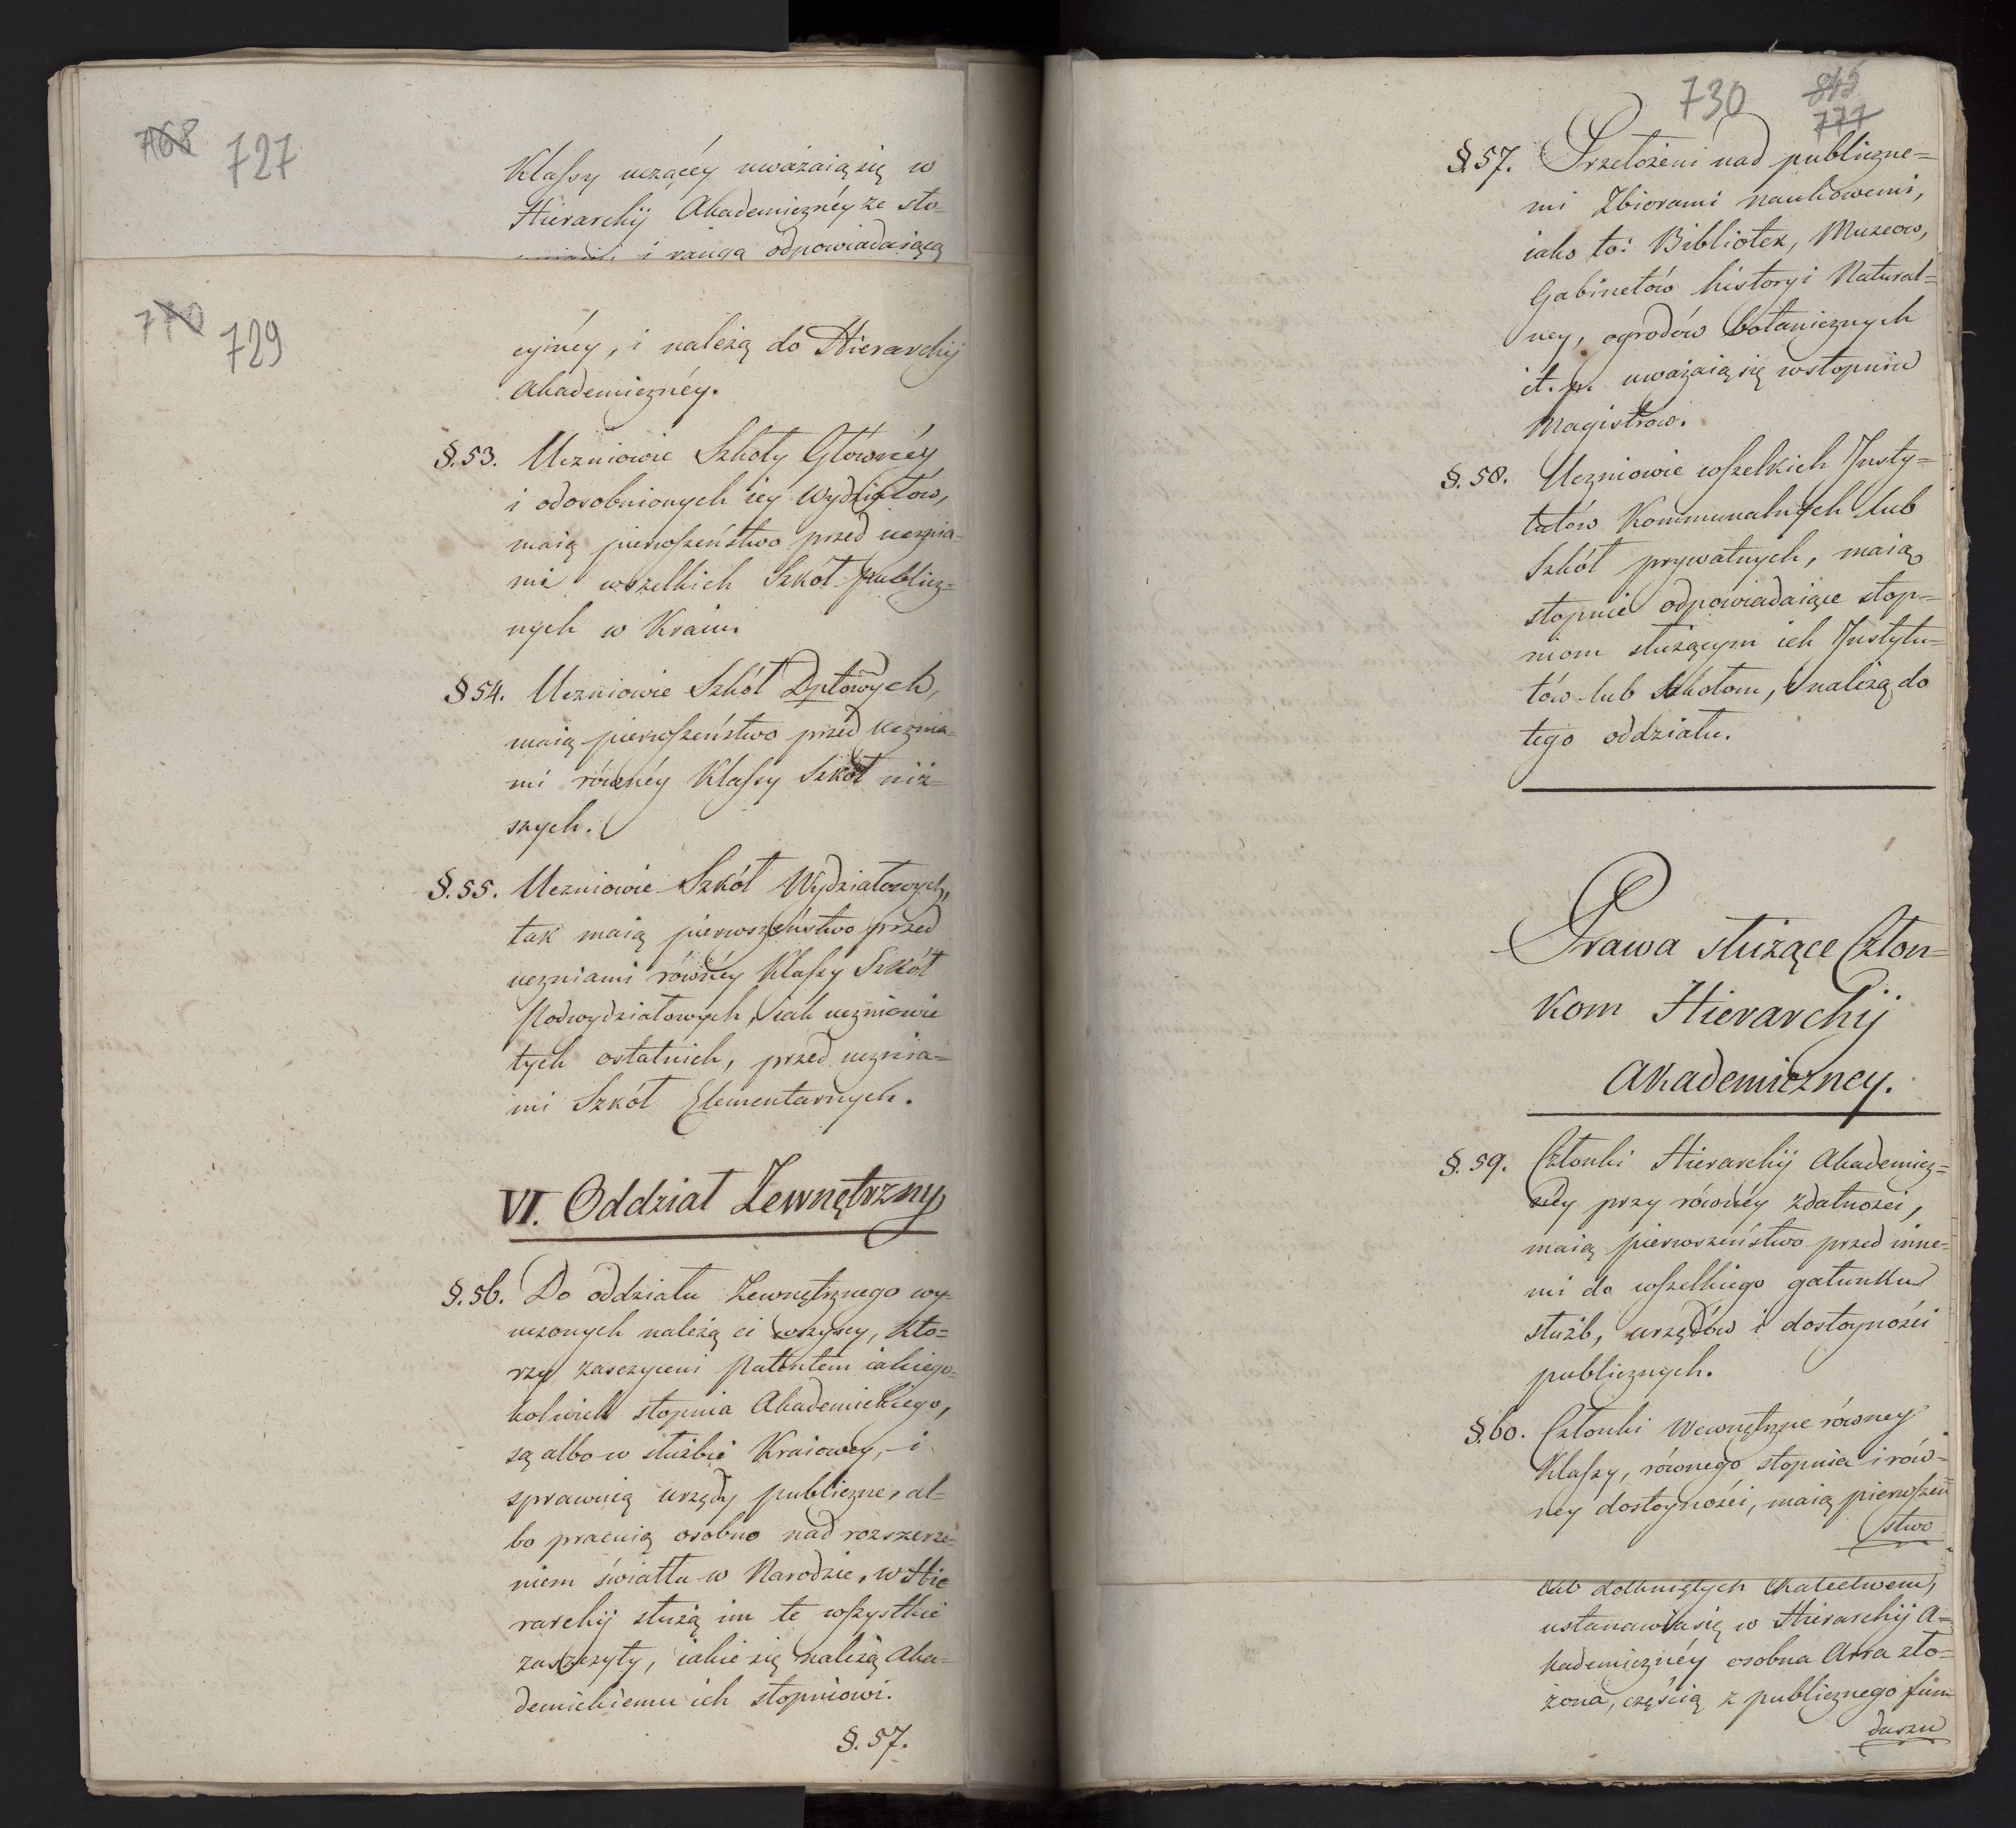 768 727
Klassy uczącéy uważaią się w
Hierarchij Akademicznéy ze sto-
i rangą odpowiadaiącą
770 729
cyinéy, i należą do Hierarchij
Akademicznéy.
§. 53. Uczniowie Szkoły Głównéy
i odosobnionych iéy Wydziałów,
maią pierwszeństwo przed ucznia-
mi wszelkich Szkół publicz=
nych w Kraiu.
§ 54. Uczniowie Szkół Dptowych,
maią pierwszeństwo przed ucznia-
mi równéy Klassy Szkół niż-
szych.
§. 55. Uczniowie Szkół Wydziałowych,
tak maią pierwszeństwo przed
uczniami równéy Klassy Szkół
Podwydziałowych, iak uczniowie
tych ostatnich, przed ucznia=
mi Szkół Elementarnych.
VI. Oddział Zewnętrzny
§. 56. Do oddziału Zewnętrznego wy-
uczonych należą ci wszyscy, któ=
rzy zaszczyceni Patentem iakiego-
kolwiek stopnia Akademickiego,
są albo w służbie Kraiowey, i
sprawuią urzędy publiczne, al-
bo pracuią osobno nad rozszerze-
niem światła w Narodzie, w Hie
rarchij służą im te wszystkie
zaszczyty, iakie się należą Aka=
demickiemu ich stopniowi.
§. 57.
730 842
771
§. 57. Przełożeni nad publiczne=
mi Zbiorami naukowemi,
iako to: Bibliotek, Muzeow,
Gabinetów historyi Natural=
ney, ogrodów botanicznych
it. p. uważaią się w stopniu
Magistrow.
§. 58. Uczniowie wszelkich Insty=
tutów Kommunalnych lub
Szkół prywatnych, maią
stopnie odpowiadaiące stop=
niom służącym ich Instytu=
tów lub Szkołom, i należą do
tego oddziału.
Prawa służące Człon=
kom Hierarchij
Akademiczney.
§. 59. Członki Hierarchij Akademicz=
néy przy równéy zdatności,
maią pierwszeństwo przed inne=
mi do wszelkiego gatunku
służb, urzędów i dostoyności
publicznych.
§. 60. Członki Wewnętrzne równey
Klassy, równego stopnia i rów=
ney dostoyności, maią pierwszeń
stwo
lub dotkniętych Kalectwem,
ustanawia się w Hierarchij A=
kademicznéy osobna Massa zło=
żona, częścią z publicznego fun-
duszu